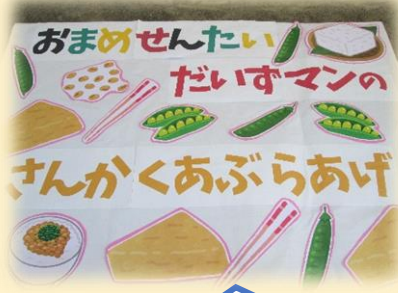 おまめせんたい
だいずマンの
さんかくあぶらあげ